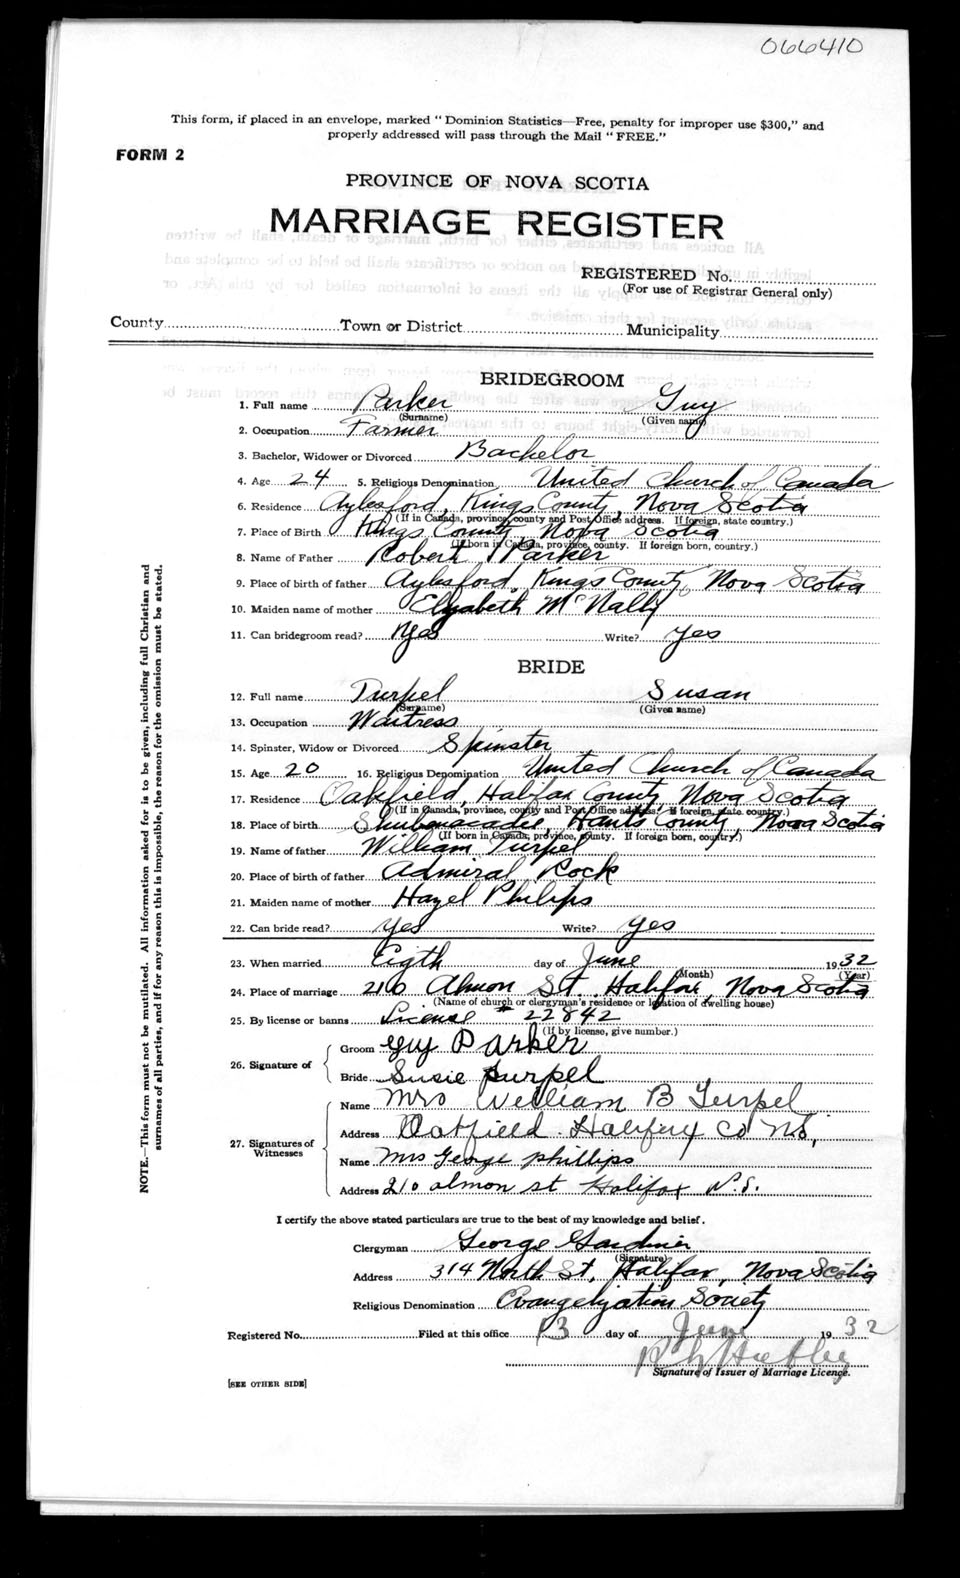 066410
This form, if placed in an envelope, marked " Dominion Statistics—Free, penalty for improper use $300," and
properly addressed will pass through the Mail " FREE."
FORM 2
PROVINCE OF NOVA SCOTIA
MARRIAGE REGISTER
REGISTERED No.
(For use of Registrar General only)
County Town or District Municipality
BRIDEGROOM
1. Full name Parker Guy
(Surname) (Given name)
2. Occupation Farmer
3. Bachelor, Widower or Divorced Bachelor
4. Age 24 5. Religious Denomination United Church of Canada
6. Residence Aylesford, Kings County, Nova Scotia
(If in Canada, province, county and Post Office address. If foreign, state country.)
7. Place of Birth Kings County, Nova Scotia
(If born in Canada, province, county. If foreign born, country.)
8. Name of Father Robert Parker
9. Place of birth of father Aylesford, Kings County, Nova Scotia
10. Maiden name of mother Elizabeth McNally
11. Can bridegroom read? Yes Write? yes
BRIDE
12. Full name Turpel Susan
(Surname) (Given name)
13. Occupation Waitress
14. Spinster, Widow or Divorced Spinster
15. Age 20 16. Religious Denomination United Church of Canada
17. Residence Oakfield, Halifax County, Nova Scotia
(If in Canada, province, county and Post Office address. If foreign, state country.)
18. Place of birth Shubenacadie, Hants County, Nova Scotia
(If born in Canada, province, county. If foreign born, country.)
19. Name of father William Turpel
20. Place of birth of father Admiral Rock
21. Maiden name of mother Hazel Philips
22. Can bride read? yes Write? yes
23. When married Eigth day of June 1932
(Month) (Year)
24. Place of marriage 210 Almon St., Halifax, Nova Scotia
(Name of church or clergyman's residence or location of dwelling house)
25. By license or banns License # 22842
(If by license, give number.)
26. Signature of
Groom Guy Parker
Bride Susie Turpel
27. Signatures of Witnesses
Name Mrs William B Turpel
Address Oakfield Halifax Co N.S,
Name Mrs George phillips
Address 210 almon st Halifax N.S.
I certify the above stated particulars are true to the best of my knowledge and belief.
Clergyman George Gardiner
(Signature)
Address 314 North St, Halifax, Nova Scotia
Religious Denomination Evangelization Society
Registered No. Filed at this office 13 day of June 1932
Signature of Issuer of Marriage Licence.
[SEE OTHER SIDE]
NOTE.—This form must not be mutilated. All information asked for is to be given, including full Christian and
surnames of all parties, and if for any reason this is impossible, the reason for the omission must be stated.